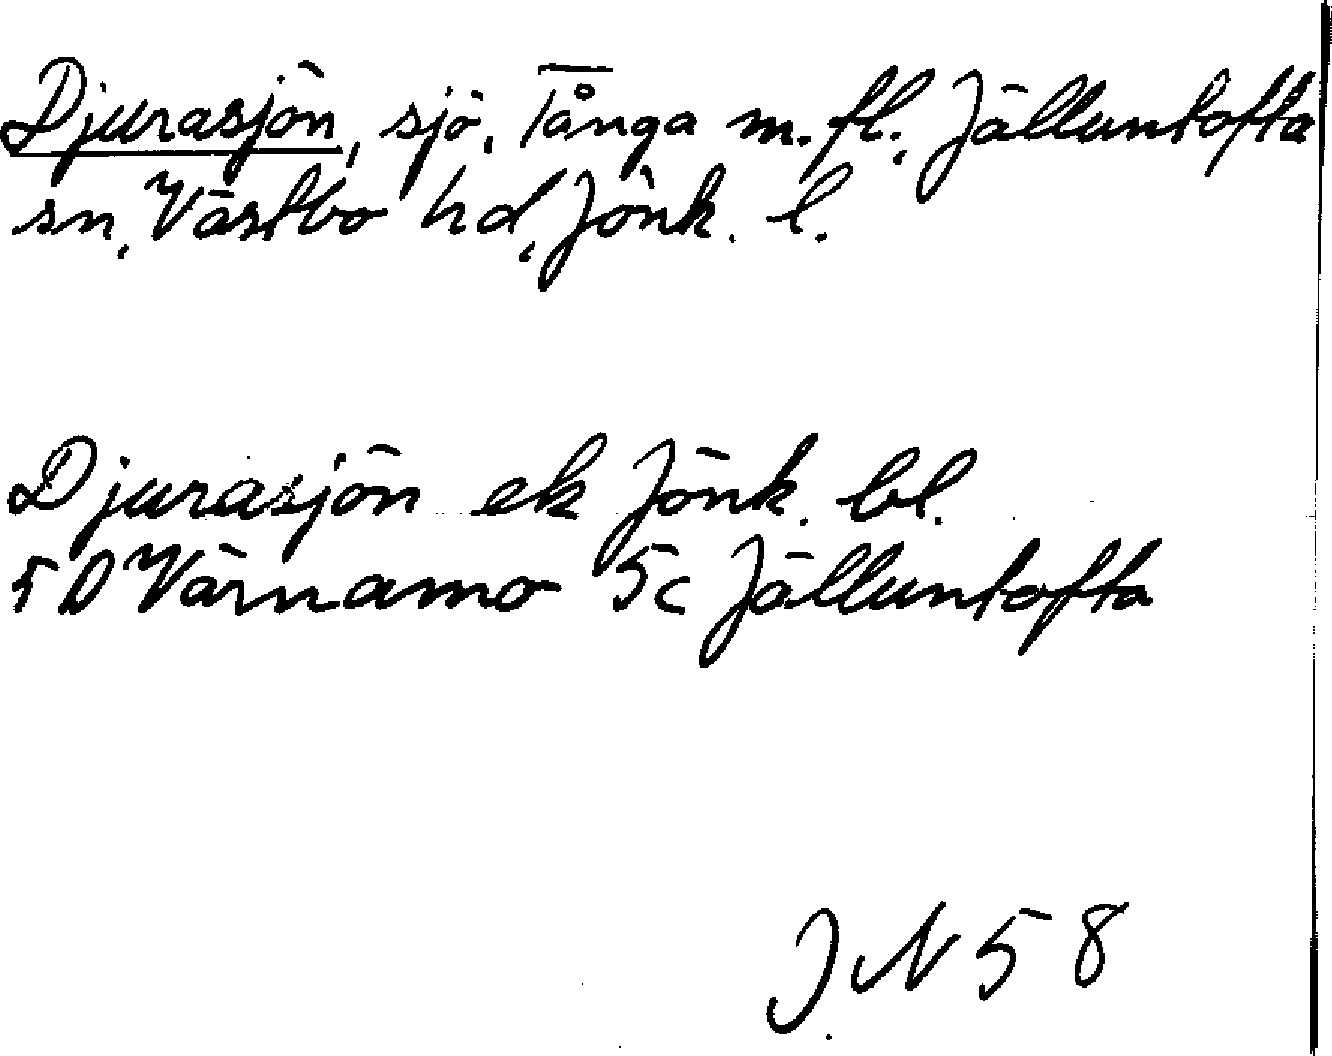 Djurasjön, sjö, Tånga m. fl., Jälluntofta
sn, Västbo hd, Jönk. l.
Djurasjön ek Jönk. bl.
5D Värnamo 5c Jälluntofta
J. N 58